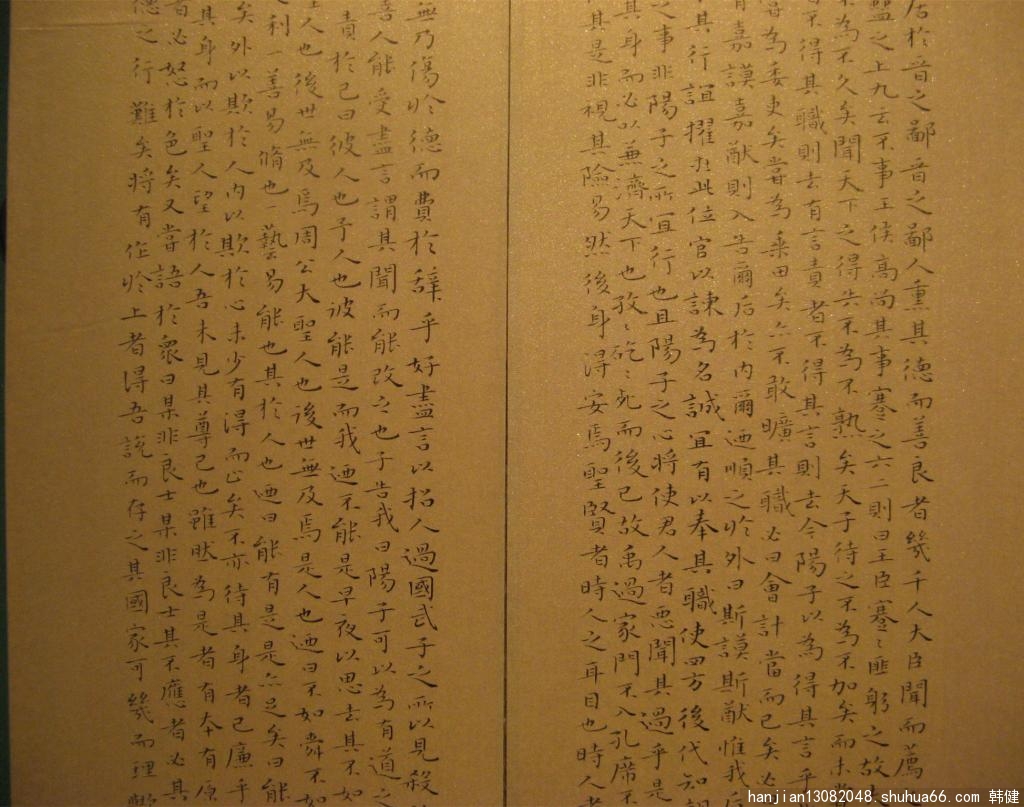 居於晉之鄙晉之鄙人熏其德而善良者幾千人大臣聞而薦
蠱之上九云不事王侯高尚其事蹇之六二則曰王臣蹇〻匪躬之故
為不久矣聞天下之得失不為不熟矣天子待之不為不加矣而未
不得其職則去有言責者不得其言則去今陽子以為得其言乎
嘗為委吏矣嘗為乘田矣亦不敢曠其職必曰會計當而已矣必
有嘉謨嘉猷則入告爾后於內爾迺順之於外曰斯謨斯猷惟我后
其行誼擢在此位官以諫為名誠宜有以奉其職使四方後代知
之事非陽子之所宜行也且陽子之心將使君人者惡聞其過乎是
其身而必以兼濟天下也孜〻矻〻死而後已故禹過家門不入孔席不
其是非視其險易然後身得安焉聖賢者時人之耳目也時人者
無乃傷於德而費於辭乎好盡言以招人過國武子之所以見殺
善人能受盡言謂其聞而能改之也子告我曰陽子可以為有道之
責於己曰彼人也予人也彼能是而我迺不能是早夜以思去其不如
聖人也後世無及焉周公大聖人也後世無及焉是人也迺曰不如舜不如
利一善易脩也一藝易能也其於人也迺曰能有是是亦足矣曰能
矣外以欺於人內以欺於心未少有得而止矣不亦待其身者已廉乎
其身而以聖人望於人吾未見其尊己也雖然為是者有本有原
者必怒於色矣又嘗語於眾曰某非良士某非良士其不應者必其
德之行難矣將有作於上者得吾說而存之其國家可幾而理歟
hanjian13082048 shuhua66.com 韩健